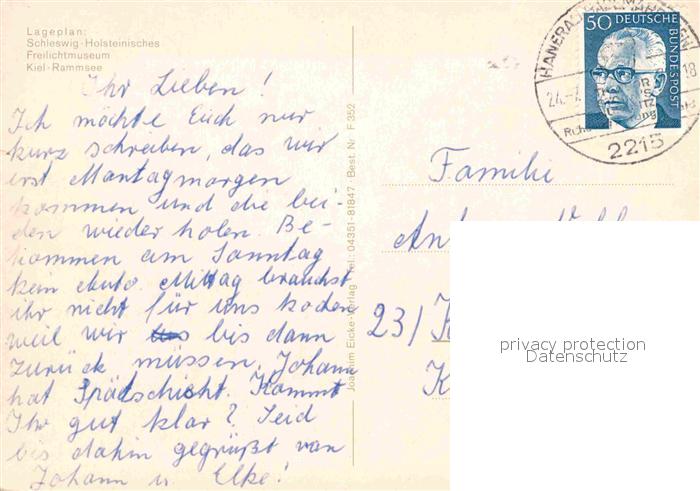 Lageplan:
Schleswig-Holsteinisches
Freilichtmuseum
Kiel-Rammsee
Ihr Lieben!
Ich möchte Euch nur
kurz schreiben, das wir
erst Montagmorgen
kommen und die bei-
den wieder holen. Be-
kommen am Sonntag
kein Auto. Mittag brauchst
ihr nicht für uns kochen
weil wir bis dann
zurück müssen. Johann
hat Spädschicht. Kommt
Ihr gut klar? Seid
bis dahin gegrüßt von
Johann u. Elke!
Joachim Eicke-Verlag · Tel.: 04351-81847 Best. Nr. F 352
50 DEUTSCHE
BUNDESPOST
HANERAU-HADEMARSCHEN
24.-7.
18
2215
Familie
23/
privacy protection
Datenschutz